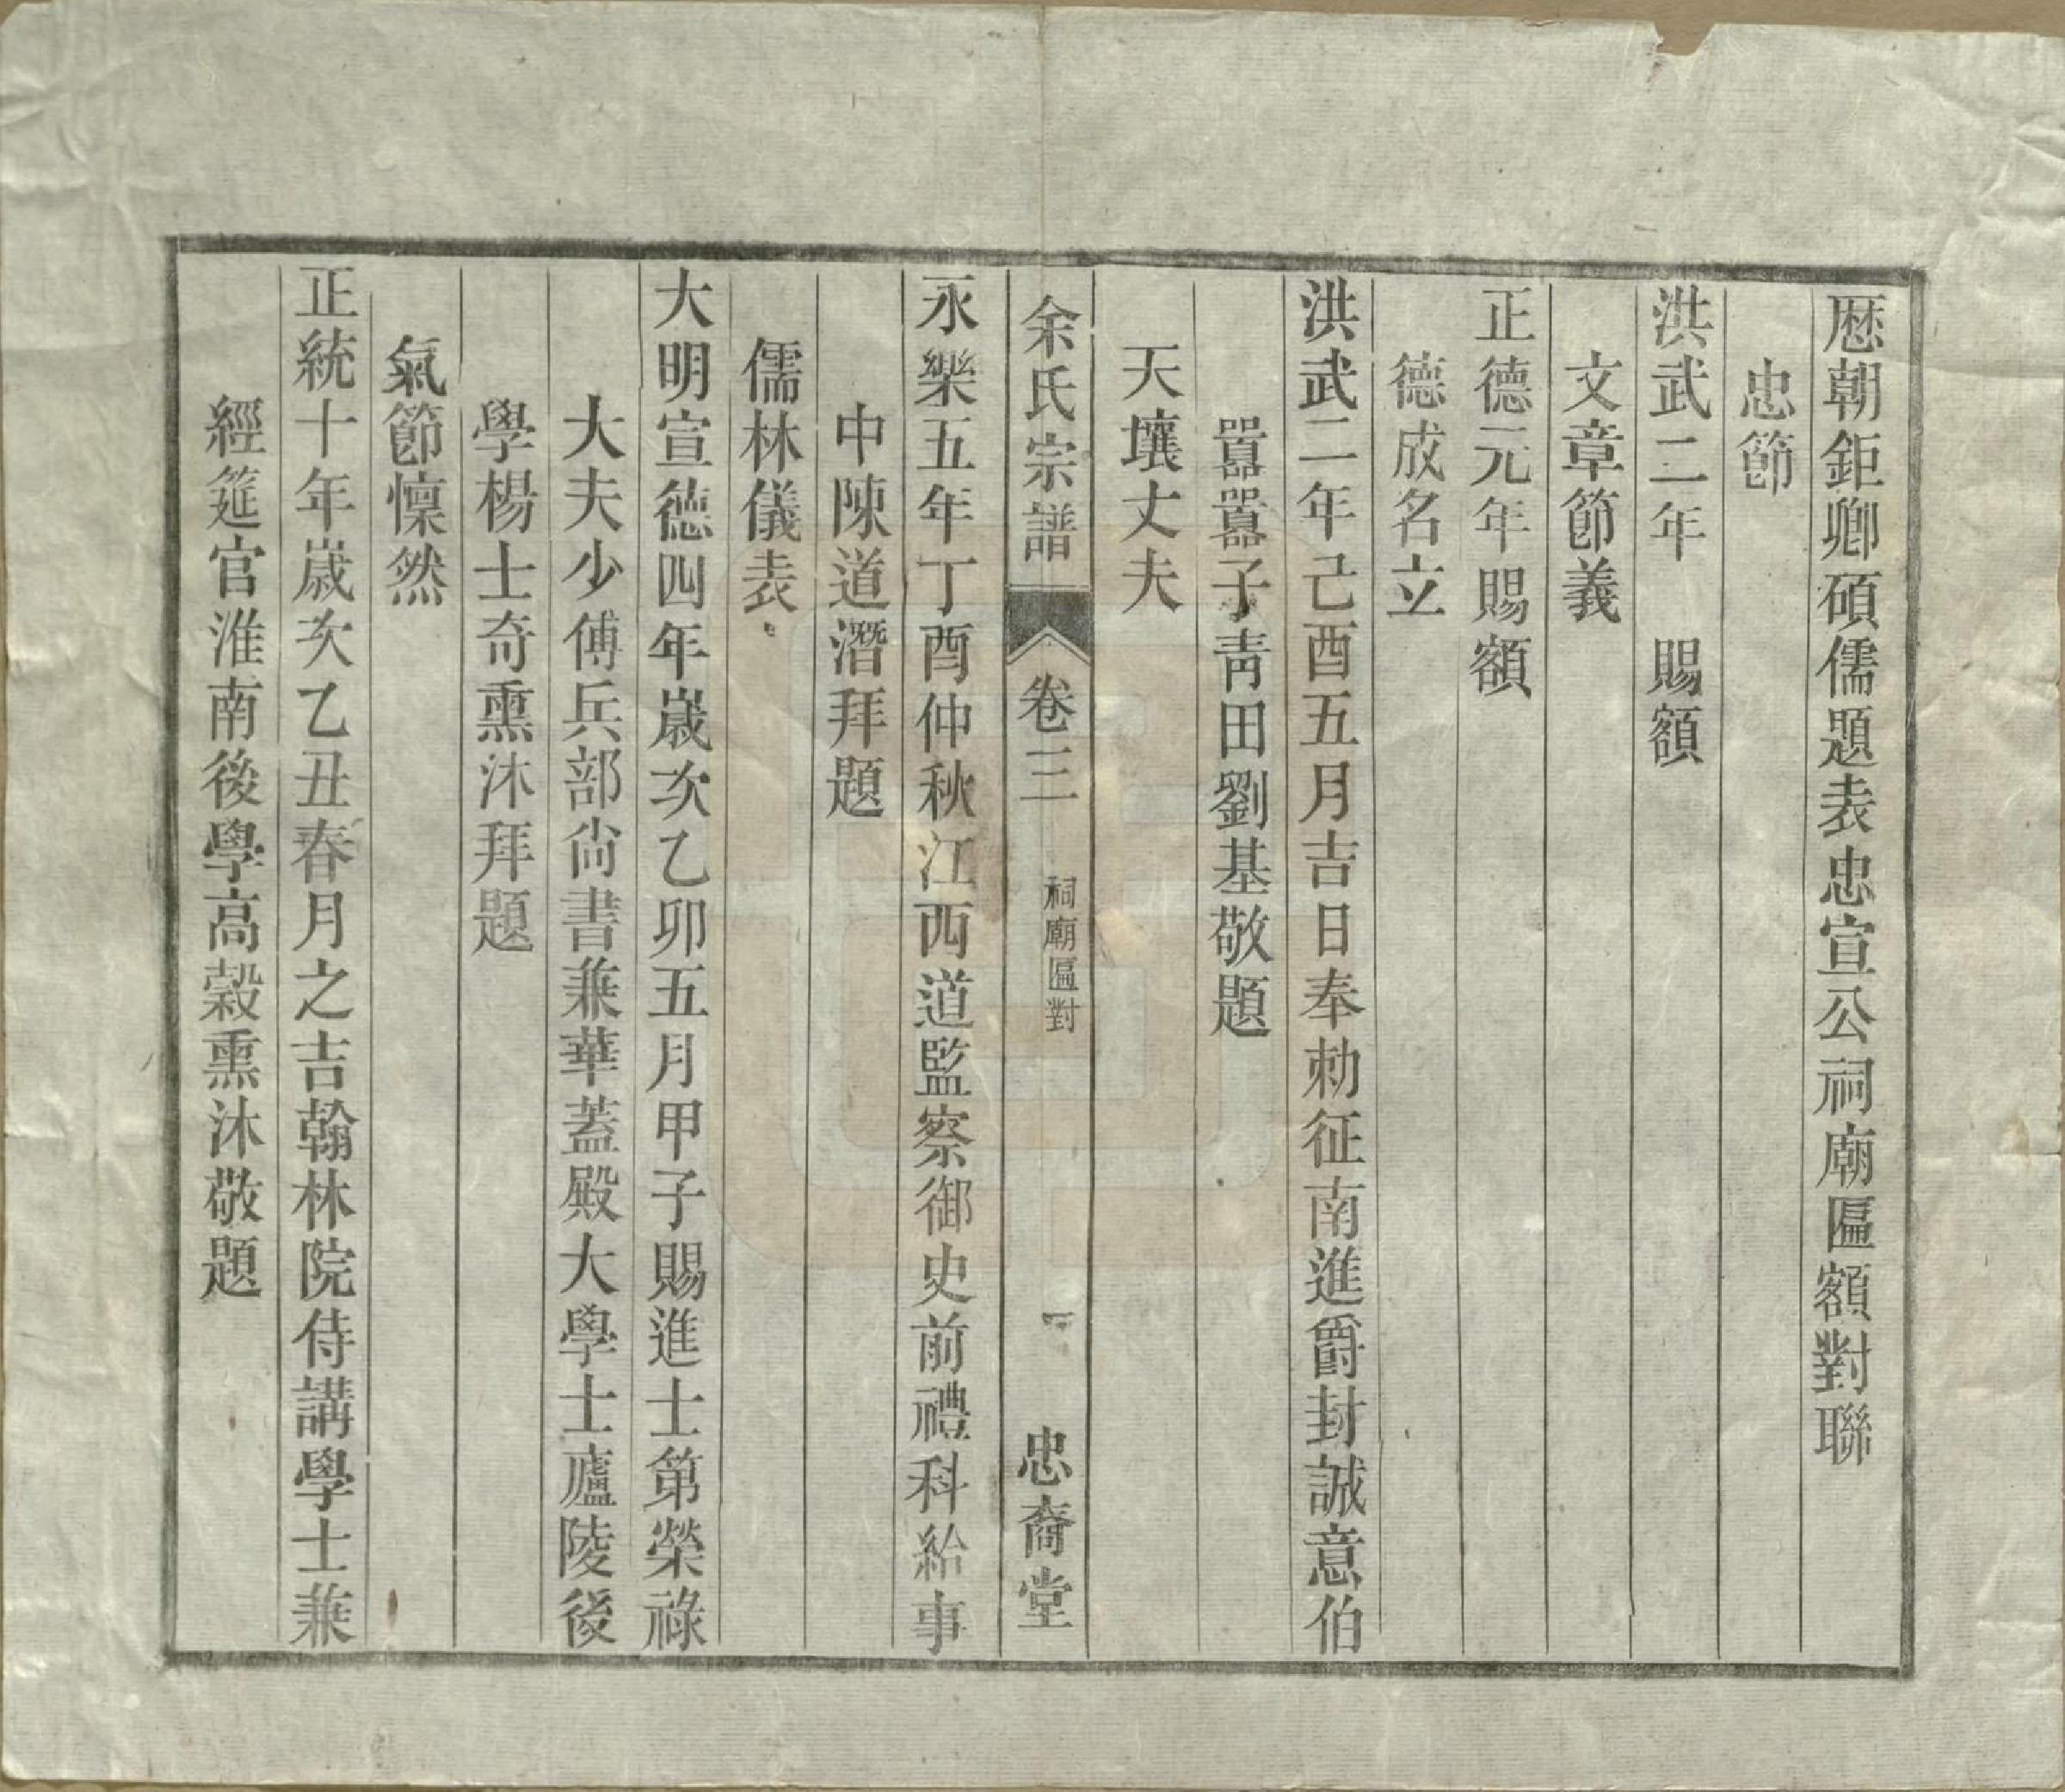 歴朝鉅卿碩儒題表忠宣公祠廟匾額對聯
忠節
洪武二年　賜額
文章節義
正德元年賜額
德成名立
洪武二年己酉五月吉日奉勅征南進爵封誠意伯
囂囂子靑田劉基敬題
天壤丈夫
余氏宗譜　卷二　祠廟匾對　一　忠裔堂
永樂五年丁酉仲秋江西道監察御史前禮科給事
中陳道潛拜題
儒林儀表
大明宣德四年歲次乙卯五月甲子賜進士第榮祿
大夫少傅兵部尙書兼華蓋殿大學士廬陵後
學楊士奇熏沐拜題
氣節懍然
正統十年歲次乙丑春月之吉翰林院侍講學士兼
經筵官淮南後學高穀熏沐敬題